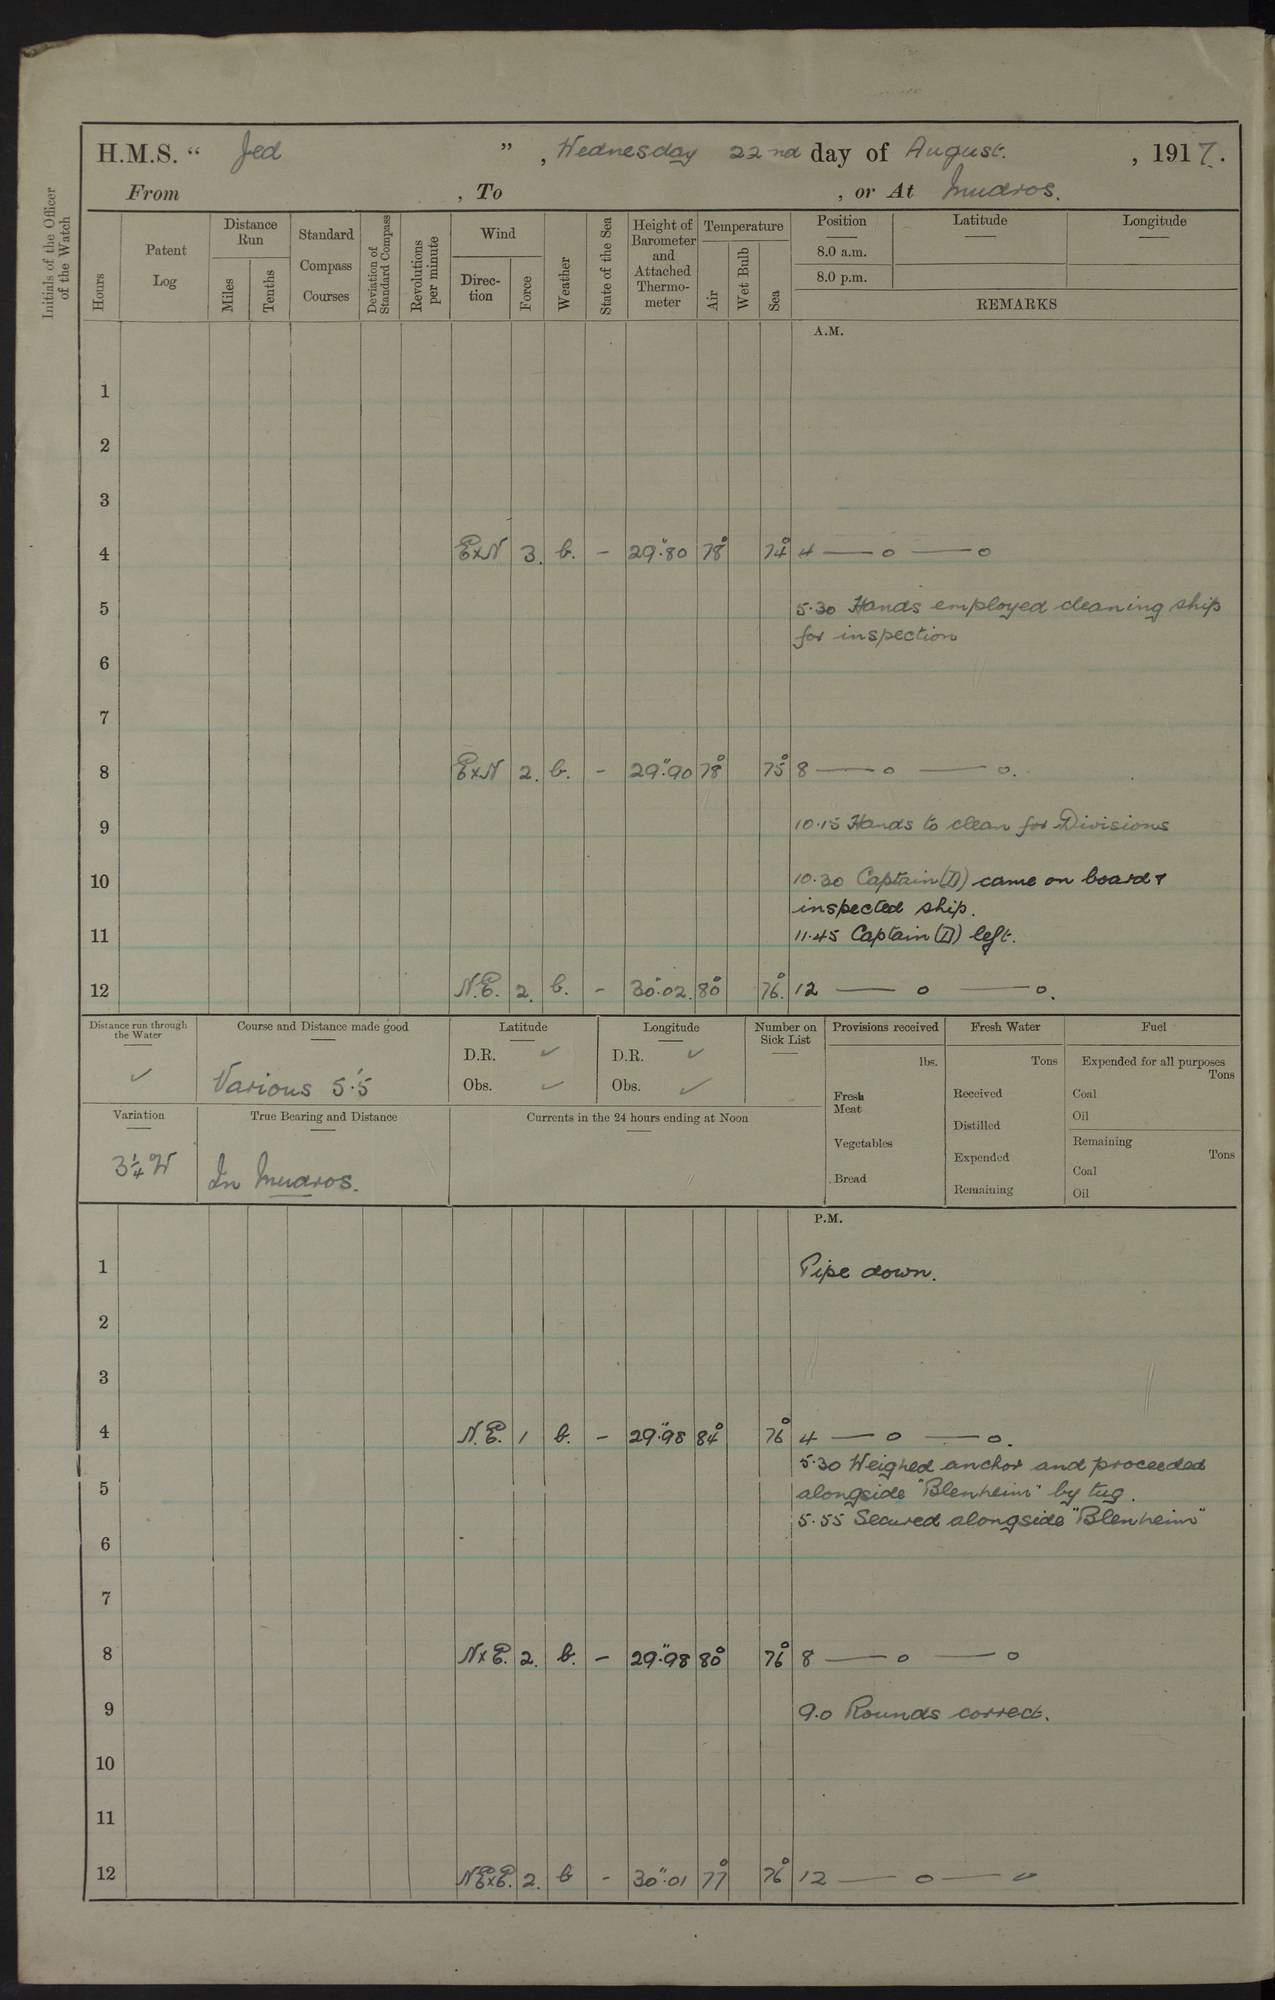 H.M.S. “ Jed ” , Wednesday 22nd day of August. , 1917.
From , To , or At Mudros.
Initials of the Officer of the Watch
Hours
Patent Log
Distance Run
Miles
Tenths
Standard Compass Courses
Deviation of Standard Compass
Revolutions per minute
Wind
Direction
Force
Weather
State of the Sea
Height of Barometer and Attached Thermometer
Temperature
Air
Wet Bulb
Sea
Position Latitude Longitude
8.0 a.m.
8.0 p.m.
REMARKS
A.M.
1
2
3
4 ExN 3. b. – 29".80 78° 74° 4 — o — o
5 5.30 Hands employed cleaning ship
for inspection
6
7
8 ExN 2. b. – 29".90 78° 75° 8 — o — o.
9 10.15 Hands to clean for Divisions
10 10.30 Captain (D) came on board &
inspected ship.
11 11.45 Captain (D) left.
12 N.E. 2. b. – 30".02. 80° 76°. 12 — o — o.
Distance run through the Water
✓
Course and Distance made good
Various 5'.5
Latitude
D.R. ✓
Obs. ✓
Longitude
D.R. ✓
Obs. ✓
Number on Sick List
Provisions received
lbs.
Fresh Meat
Vegetables
Bread
Fresh Water
Tons
Received
Distilled
Expended
Remaining
Fuel
Expended for all purposes
Tons
Coal
Oil
Remaining
Tons
Coal
Oil
Variation
3¼ W
True Bearing and Distance
In Mudros.
Currents in the 24 hours ending at Noon
P.M.
1 Pipe down.
2
3
4 N.E. 1 b. – 29".98 84° 76° 4 — o — o.
5.30 Weighed anchor and proceeded
5 alongside "Blenheim" by tug.
5.55 Secured alongside "Blenheim"
6
7
8 NxE. 2. b. – 29".98 80° 76° 8 — o — o
9 9.0 Rounds correct.
10
11
12 NExE. 2. b – 30".01 77° 76° 12 — o — o